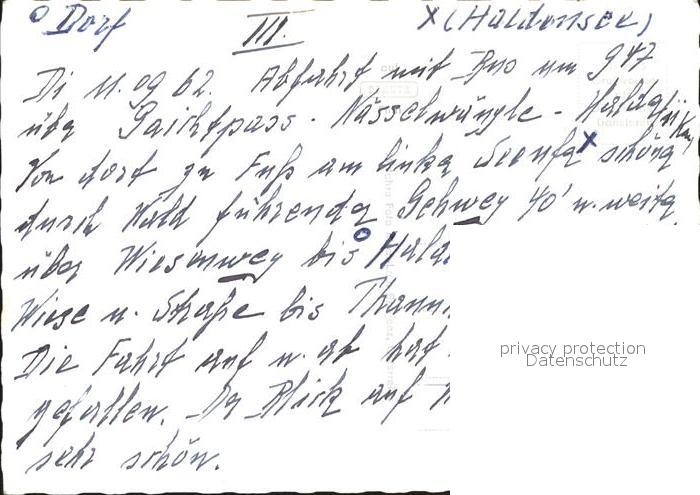 ° Dorf III. x (Haldensee)
Di 11.09 62. Abfahrt mit Bus um 9 47
über Gaichtpass - Nesselwängle - Haller
Von dort zu Fuß am linken Seeufer x schöner
durch Wald führender Gehweg 40' u. weiter
über Wiesenweg bis ° Halde
Wiese u. Straße bis Thann
Die Fahrt auf u. ab hat
gefallen. Der Blick auf
sehr schön.
privacy protection
Datenschutz